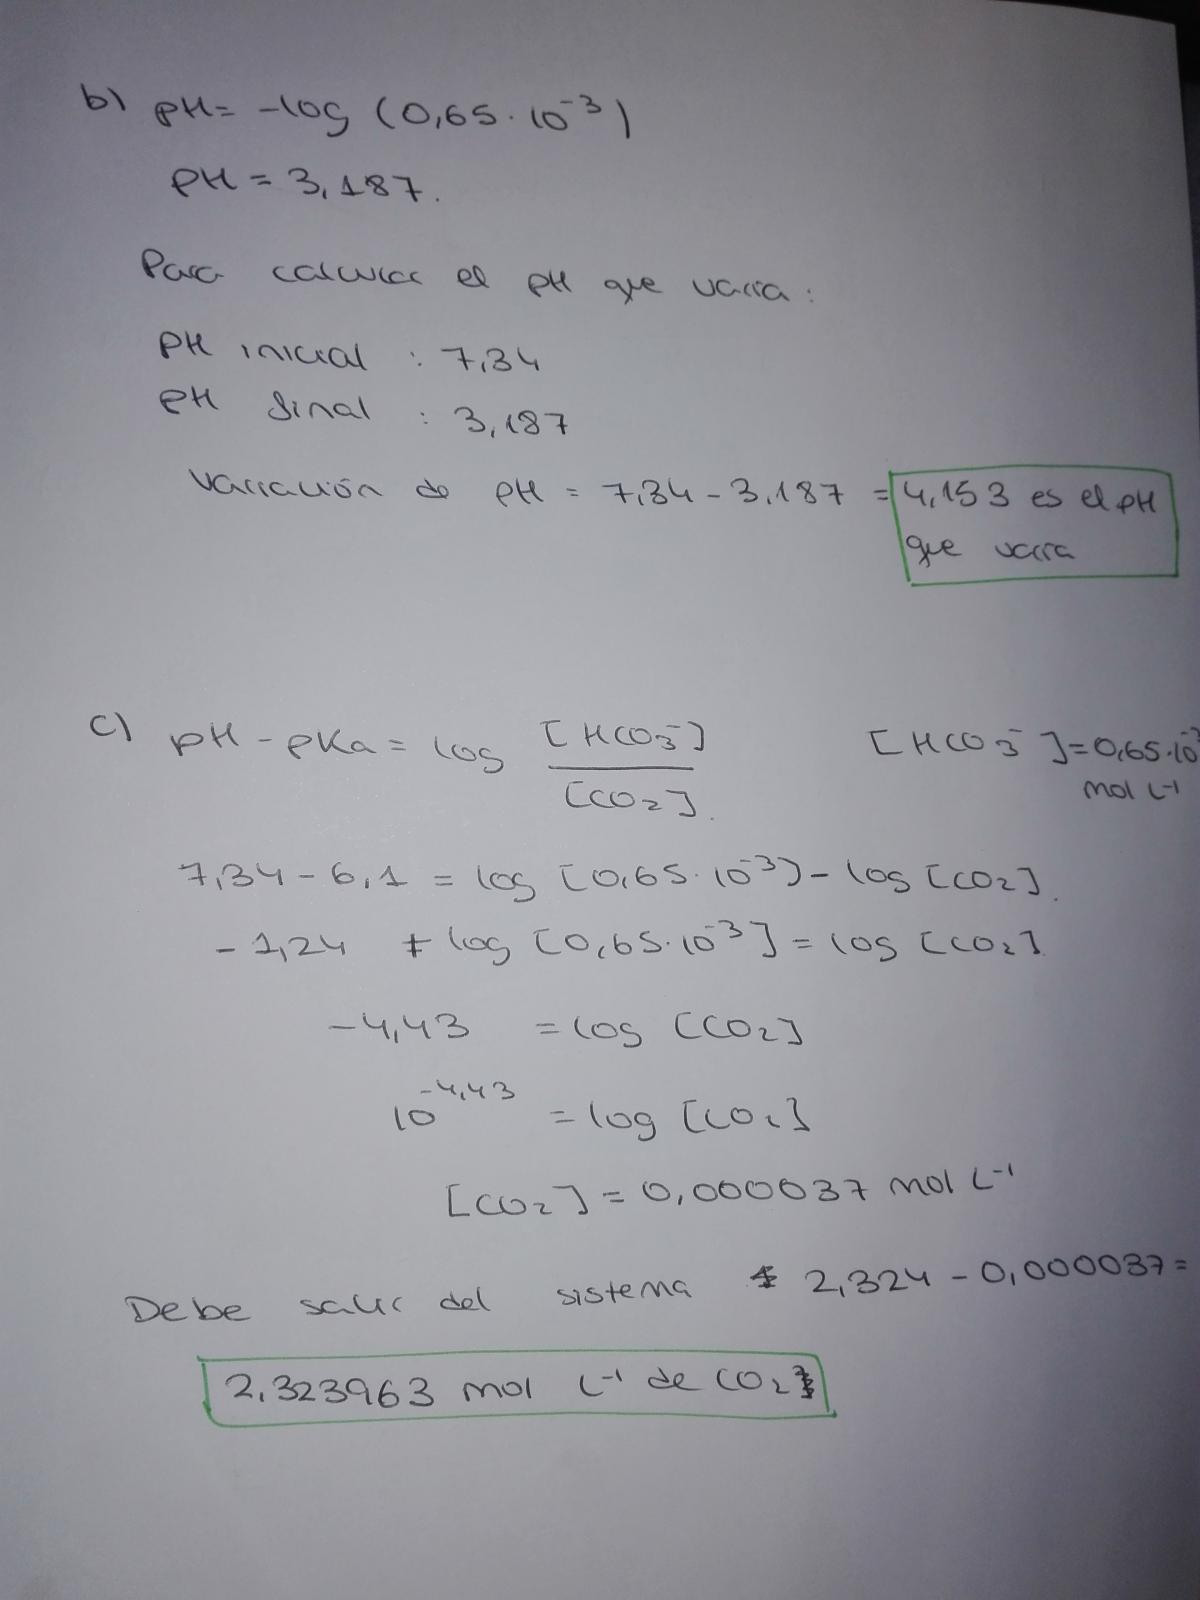 b) pH = -log (0,65 · 10⁻³)
pH = 3,187.
Para calcular el pH que varía:
pH inicial : 7,34
pH final : 3,187
Variación de pH = 7,34 - 3,187 = 4,153 es el pH
que varía
c) pH - pKa = log [HCO₃⁻] / [CO₂]. [HCO₃⁻] = 0,65·10⁻³
mol L⁻¹
7,34 - 6,1 = log [0,65·10⁻³] - log [CO₂].
- 1,24 + log [0,65·10⁻³] = log [CO₂]
-4,43 = log [CO₂]
10⁻⁴,⁴³ = log [CO₂]
[CO₂] = 0,000037 mol L⁻¹
Debe salir del sistema 2,324 - 0,000037 =
2,323963 mol L⁻¹ de CO₂